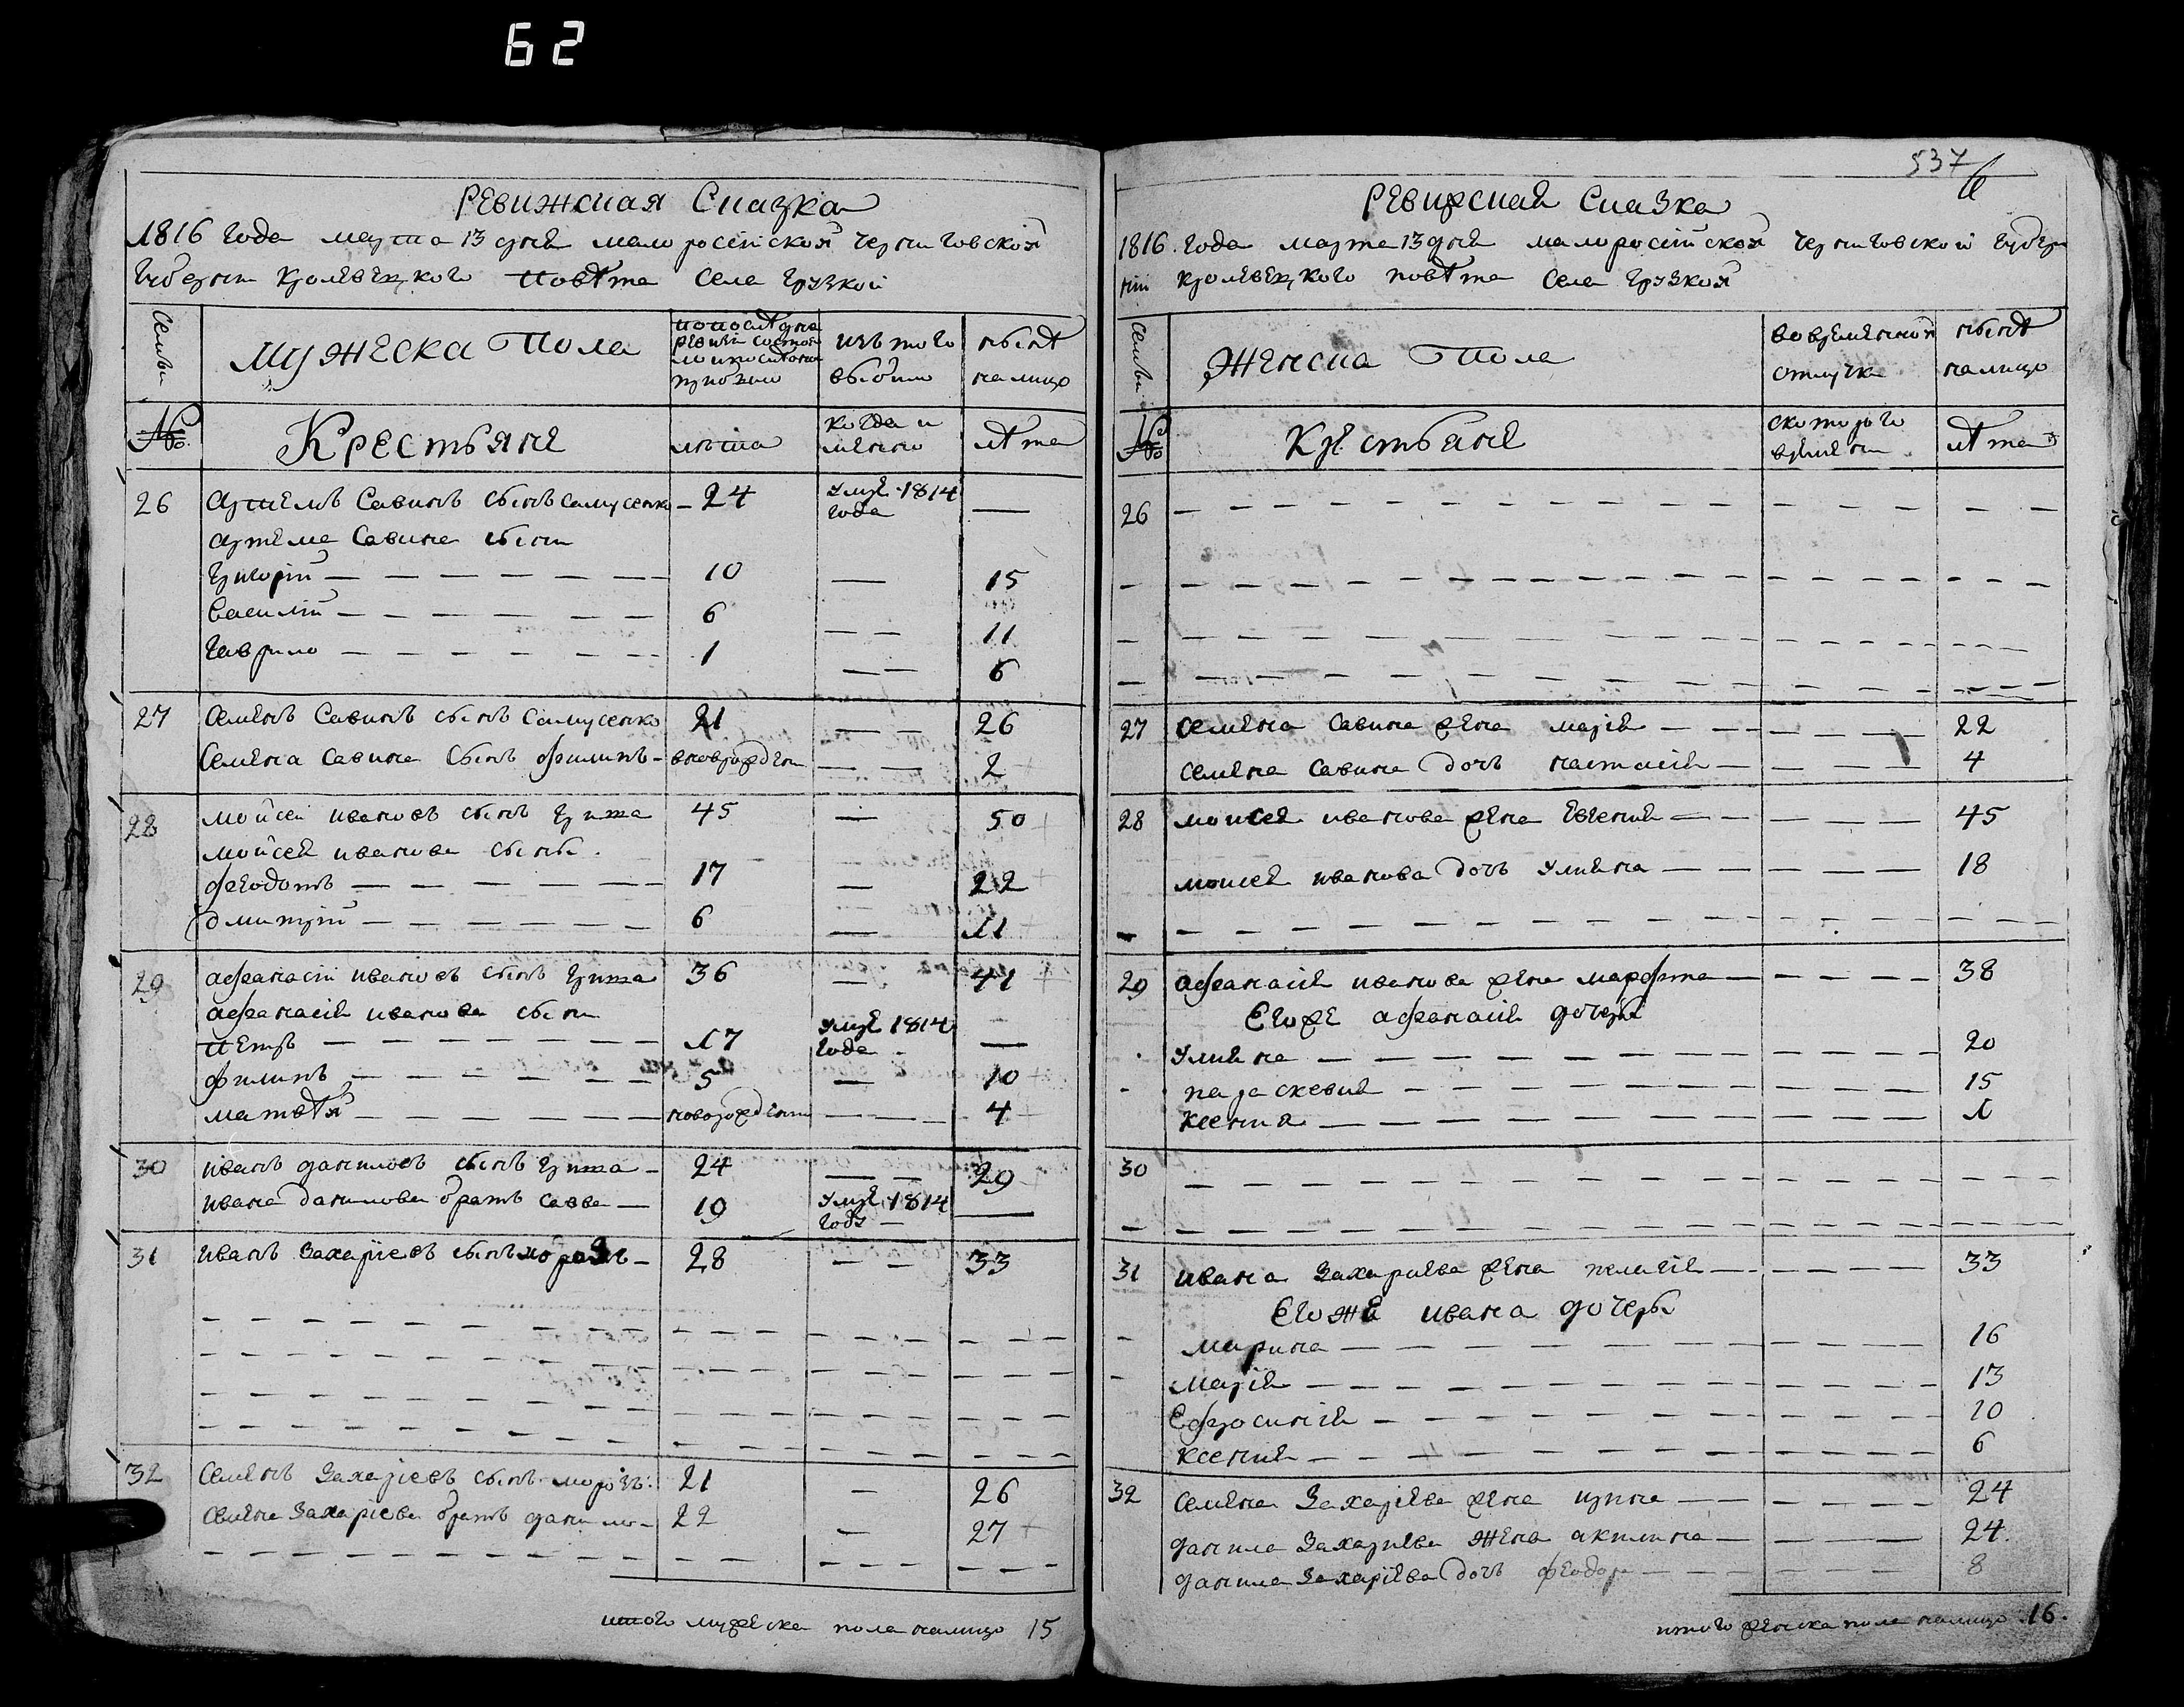 62
Ревижская Сказка
1816 года марта 13 дня малоросійской черниговской
губерніи кролевецкого повѣта села грузкой
Семьи
Мужеска Пола
по последна
ревизіи состоя
ло и послѣ того
прибыло
изъ того
выбыло
нынѣ
налицо
№
Крестьяне
лѣта
когда и
менно
лѣта
26 Артемъ Савинъ сынъ Самусенко - 24 умре 1814 года —
Артема Савина сыни
Григорій — 10 — 15
Василій — 6 — 11
Гаврило — 1 — 6
27 Семенъ Савинъ сынъ Самусенко 21 — 26
Семена Савина сынъ филипъ - вноврожден — 2
28 мойсей ивановъ сынъ грита 45 — 50
мойсея иванова сыны.
феодотъ — 17 — 22
дмитрій — 6 — 11
29 афанасій ивановъ сынъ грита 36 — 41
афанасія иванова сыни
петръ — 17 умре 1814 года —
филипъ — 5 — 10
матвѣй — новорожденни — 4
30 иванъ даниловъ сынъ грита - 24 — 29
ивана данилова братъ савва — 19 умре 1814 году —
31 иванъ Захаріевъ сынъ морозъ - 28 — 33
32 Семенъ Захаріевъ сынъ морозъ: 21 — 26
Семена Захаріева братъ данило - 22 — 27
итого мужеска пола налицо 15
537
Ревижская Сказка
1816. года марта 13 дня малоросійской черниговской губер
ніи кролевецкого повѣта села грузкой
Семьи
Женска Пола
во временной
отлучке
нынѣ
налицо
№
Крестьяне
скоторого
времени
лѣта
26 —
27 Семена Савина жена марія — 22
Семена Савина дочъ настасія — 4
28 моисея иванова жена Евгенія — 45
моисея иванова дочъ Улияна — 18
29 афанасія иванова жена марфта — 38
Егоже афанасія дочеры
Улияна — 20
параскевия — 15
Ксения — 1
30 —
31 ивана Захариева жена пелагія — 33
Егоже ивана дочеры
марина — 16
марія — 13
Ефросинія — 10
Ксения — 6
32 Семена Захаріева жена ирина — 24
данила Захариева жена акилина — 24.
данила Захаріева дочъ феодора — 8
итого женска пола налицо 16.